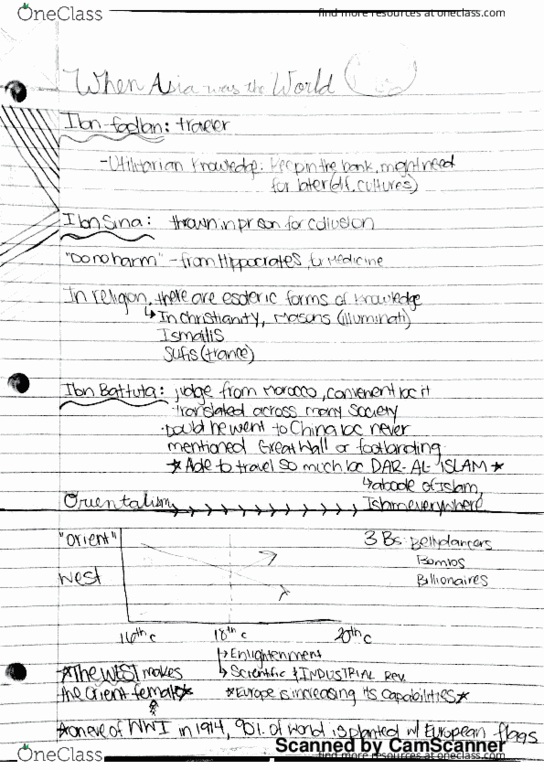 OneClass
find more resources at oneclass.com
When Asia was the World
Ibn-fadlan: traveler
-Utilitarian Knowledge: Keep in the bank, might need
for later (dif. cultures)
Ibn Sina: thrown in prison for collusion
"Do no harm" - from Hippocrates, to Medicine
In religion, there are esoteric forms of knowledge
↳ In christianity, masons (illuminati)
Ismailis
Sufis (trance)
Ibn Battuta: judge from morocco, convenient bc it
translated across many society
Doubt he went to China bc never
mentioned Great Wall or footbinding
★ Able to travel so much bc DAR-AL-ISLAM ★
↳ abode of Islam,
Islam everywhere
Orientalism
"orient"
West
3 Bs: Bellydancers
Bombs
Billionaires
16th c
18th c
20th c
↳ Enlightenment
↳ Scientific & INDUSTRIAL Rev.
★ Europe is increasing its capabilities ★
★ The WEST makes
the orient female ★
★ on eve of WWI in 1914, 90% of world is planted w/ European flags
Scanned by CamScanner
OneClass
find more resources at oneclass.com